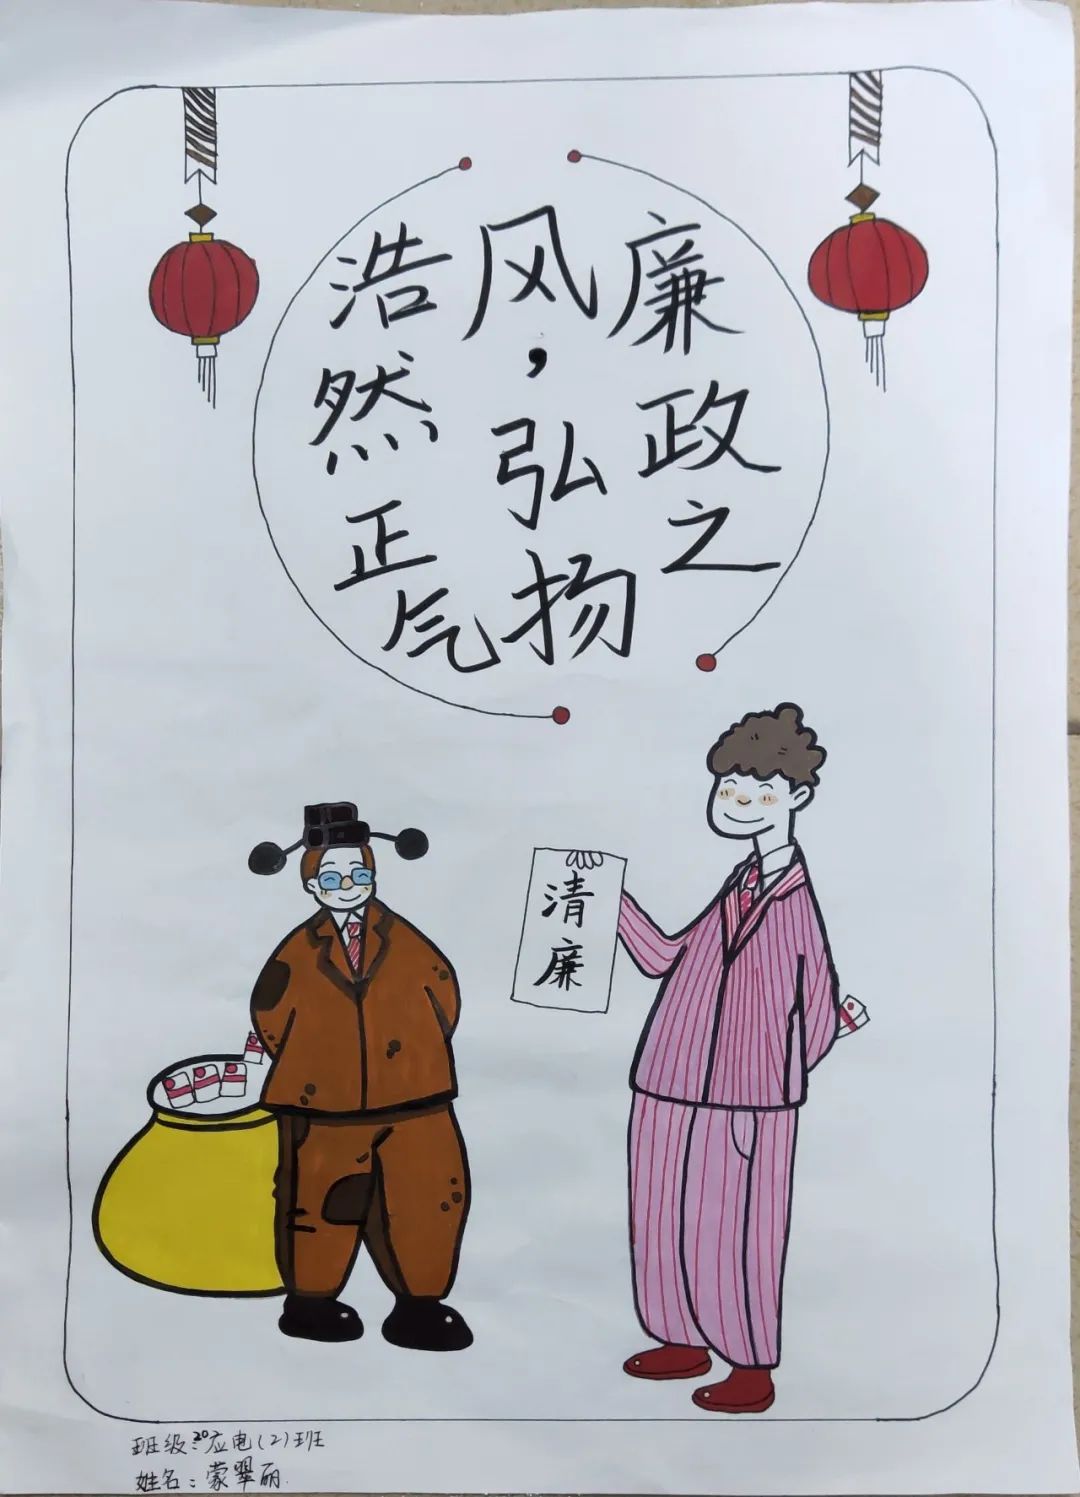 廉政之
风，弘扬
浩然正气
清廉
班级：20应电(2)班
姓名：蒙翠丽